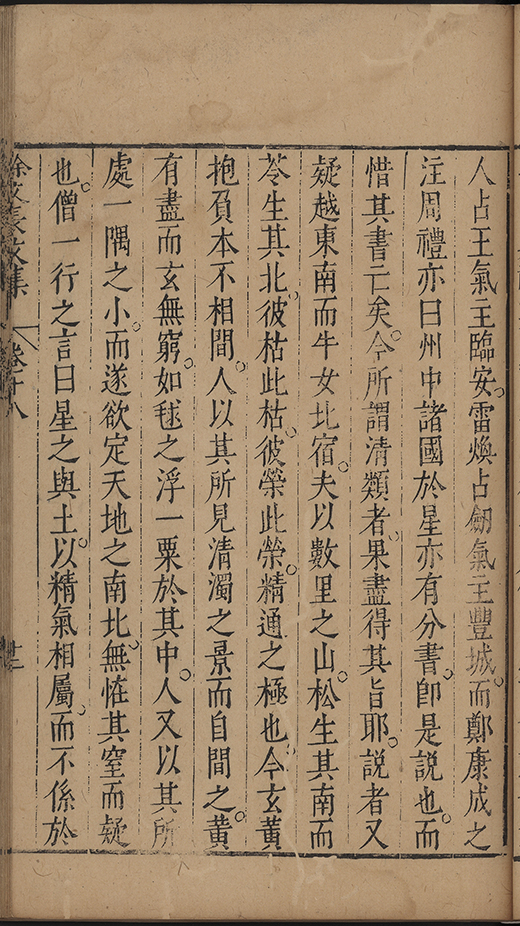 人占王氣主臨安雷煥占劒氣主豐城而鄭康成之
注周禮亦曰州中諸國於星亦有分書卽是說也而
惜其書亡矣今所謂清類者果盡得其旨耶說者又
疑越東南而牛女北宿夫以數里之山松生其南而
苓生其北彼枯此枯彼榮此榮精通之極也今玄黃
抱負本不相間人以其所見清濁之景而自間之黃
有盡而玄無窮如毬之浮一粟於其中人又以其所
處一隅之小而遂欲定天地之南北無恠其窒而疑
也僧一行之言曰星之與土以精氣相屬而不係於
徐文長文集 卷十八